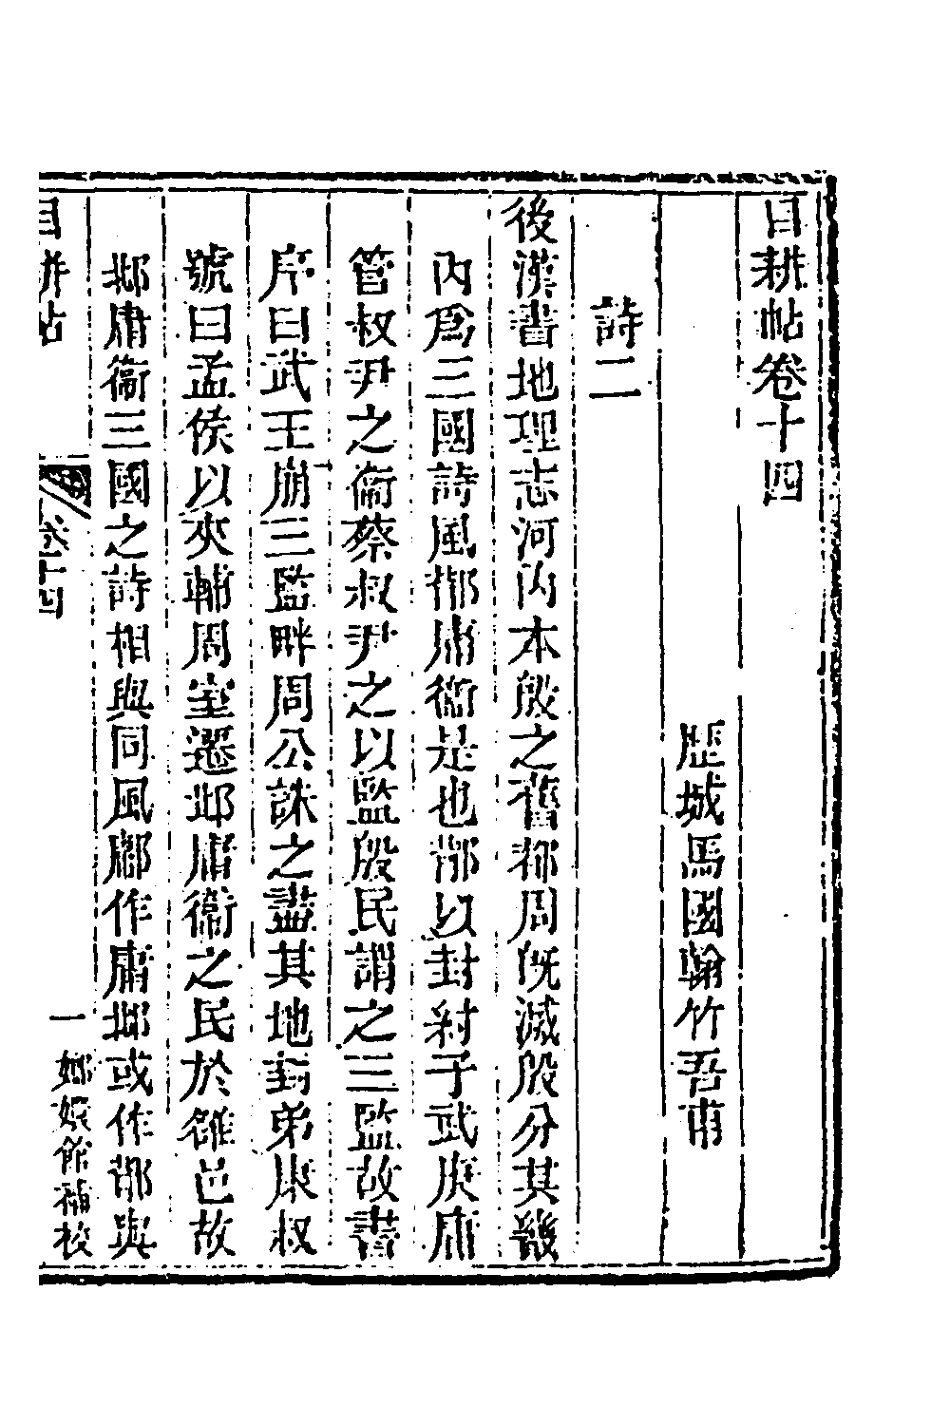 目耕帖卷十四
歷城馬國翰竹吾甫
詩二
後漢書地理志河内本殷之舊都周既滅殷分其畿
内爲三國詩風邶庸衞是也邶以封紂子武庚庸
管叔尹之衞蔡叔尹之以監殷民謂之三監故書
序曰武王崩三監畔周公誅之盡其地封弟康叔
號曰孟侯以夾輔周室遷邶庸衞之民於雒邑故
邶庸衞三國之詩相與同風鄘作庸邶或作鄁與
目耕帖
卷十四
一
嫏嬛館補校